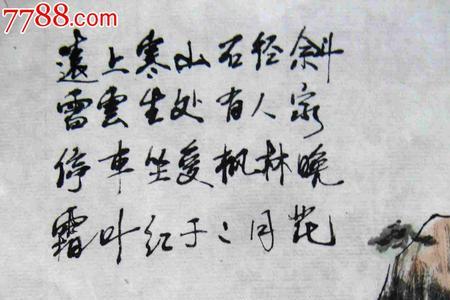 7788.com
遠上寒山石径斜
雷雲生处有人家
停車坐爱枫林晚
霜叶红于二月花